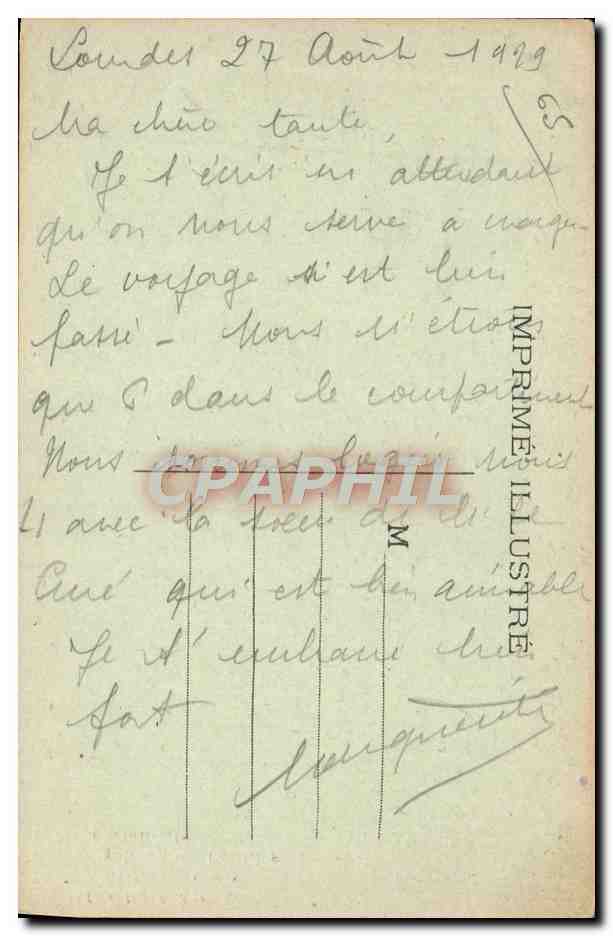 Lourdes 27 Août 1929
65
Ma chère tante,
Je t'écris en attendant
qu'on nous serve à manger
Le voyage s'est bien
passé - Nous n'étions
que 6 dans le compartiment
Nous sommes logés nous
4 avec la soeur de
Curé qui est bien aimable
Je t'embrasse bien
fort
Marguerite
IMPRIMÉ ILLUSTRÉ
M
CPAPHIL